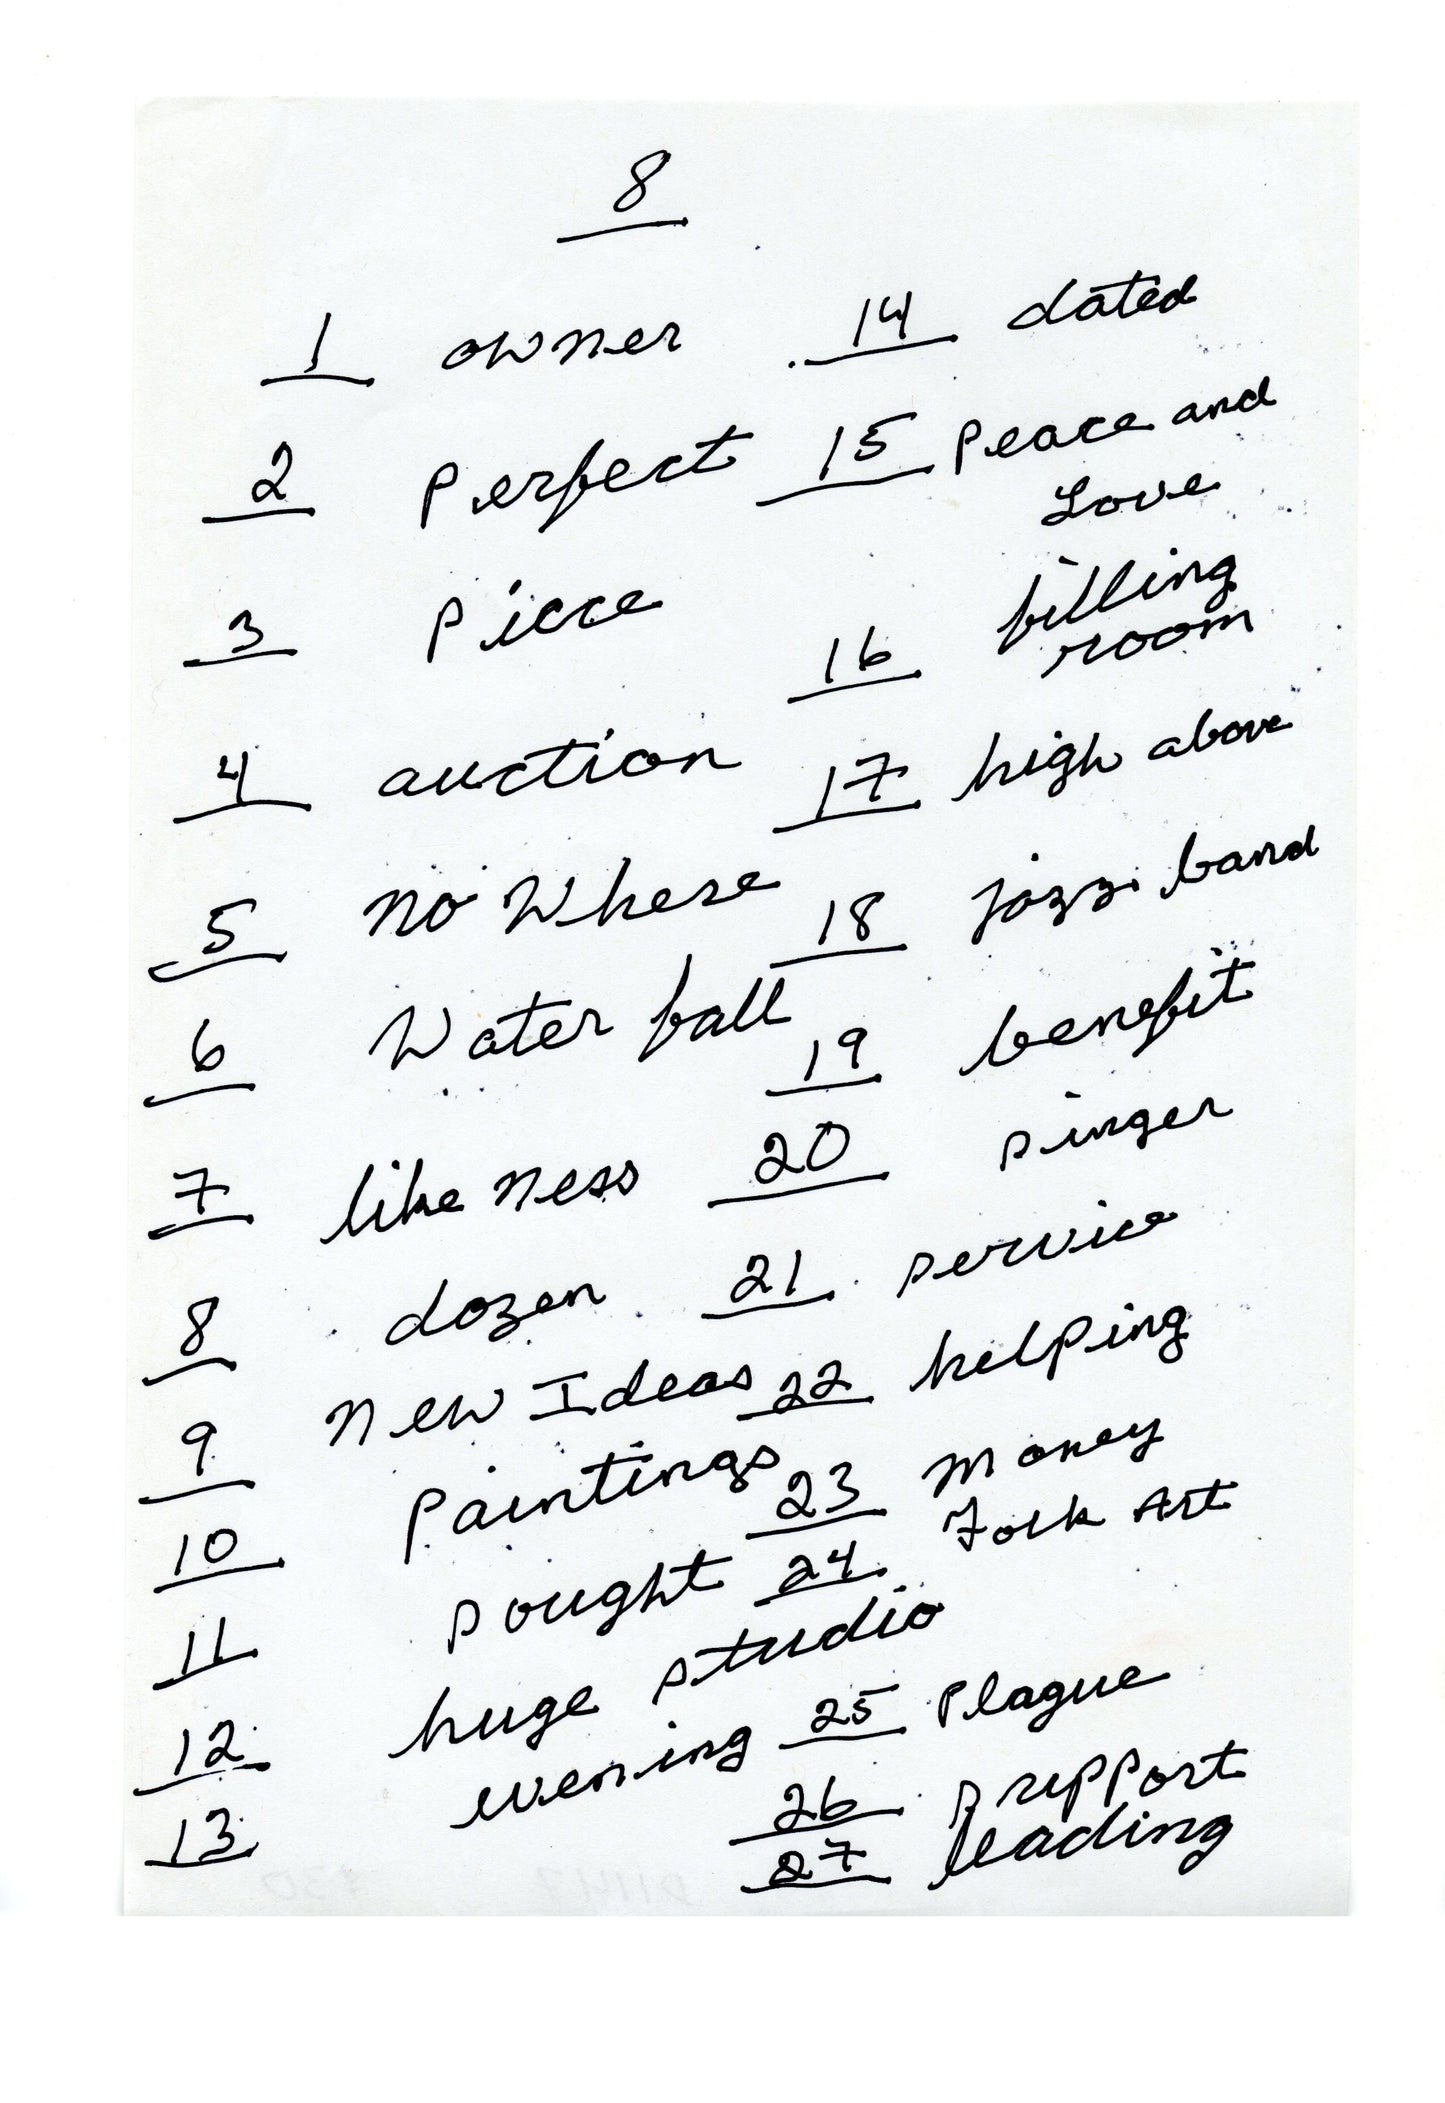 8
1 owner
2 Perfect
3 Piece
4 auction
5 No Where
6 Water fall
7 like Ness
8 dozen
9 New Ideas
10 Paintings
11 sought
12 huge studio
13 evening
14 dated
15 Peace and
Love
16 filling
room
17 high above
18 jazz band
19 benefit
20 singer
21 service
22 helping
23 Money
24 Folk Art
25 Plague
26 support
27 leading